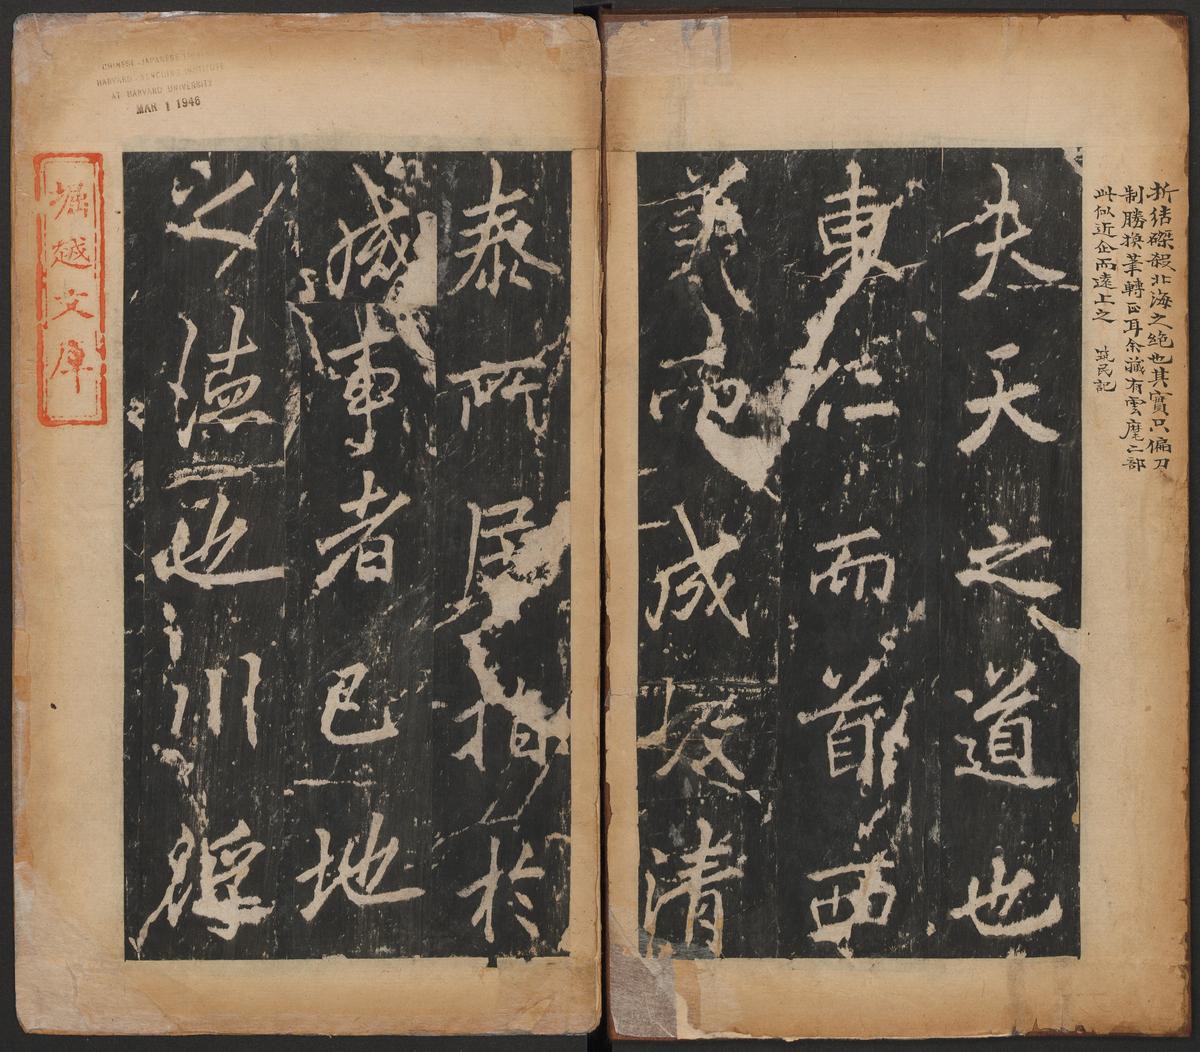 折結磔殺北海之絶也其實只偏刀
制勝換筆轉正耳余藏有雲麾二部
此似近企而遠上之 民記
夫天之道也
東仁而首西
義而成故清
泰所居指於
感事者已地
之德也川浮
堀越文庫
CHINESE-JAPANESE
HARVARD-YENCHING INSTITUTE
AT HARVARD UNIVERSITY
MAR 1 1946